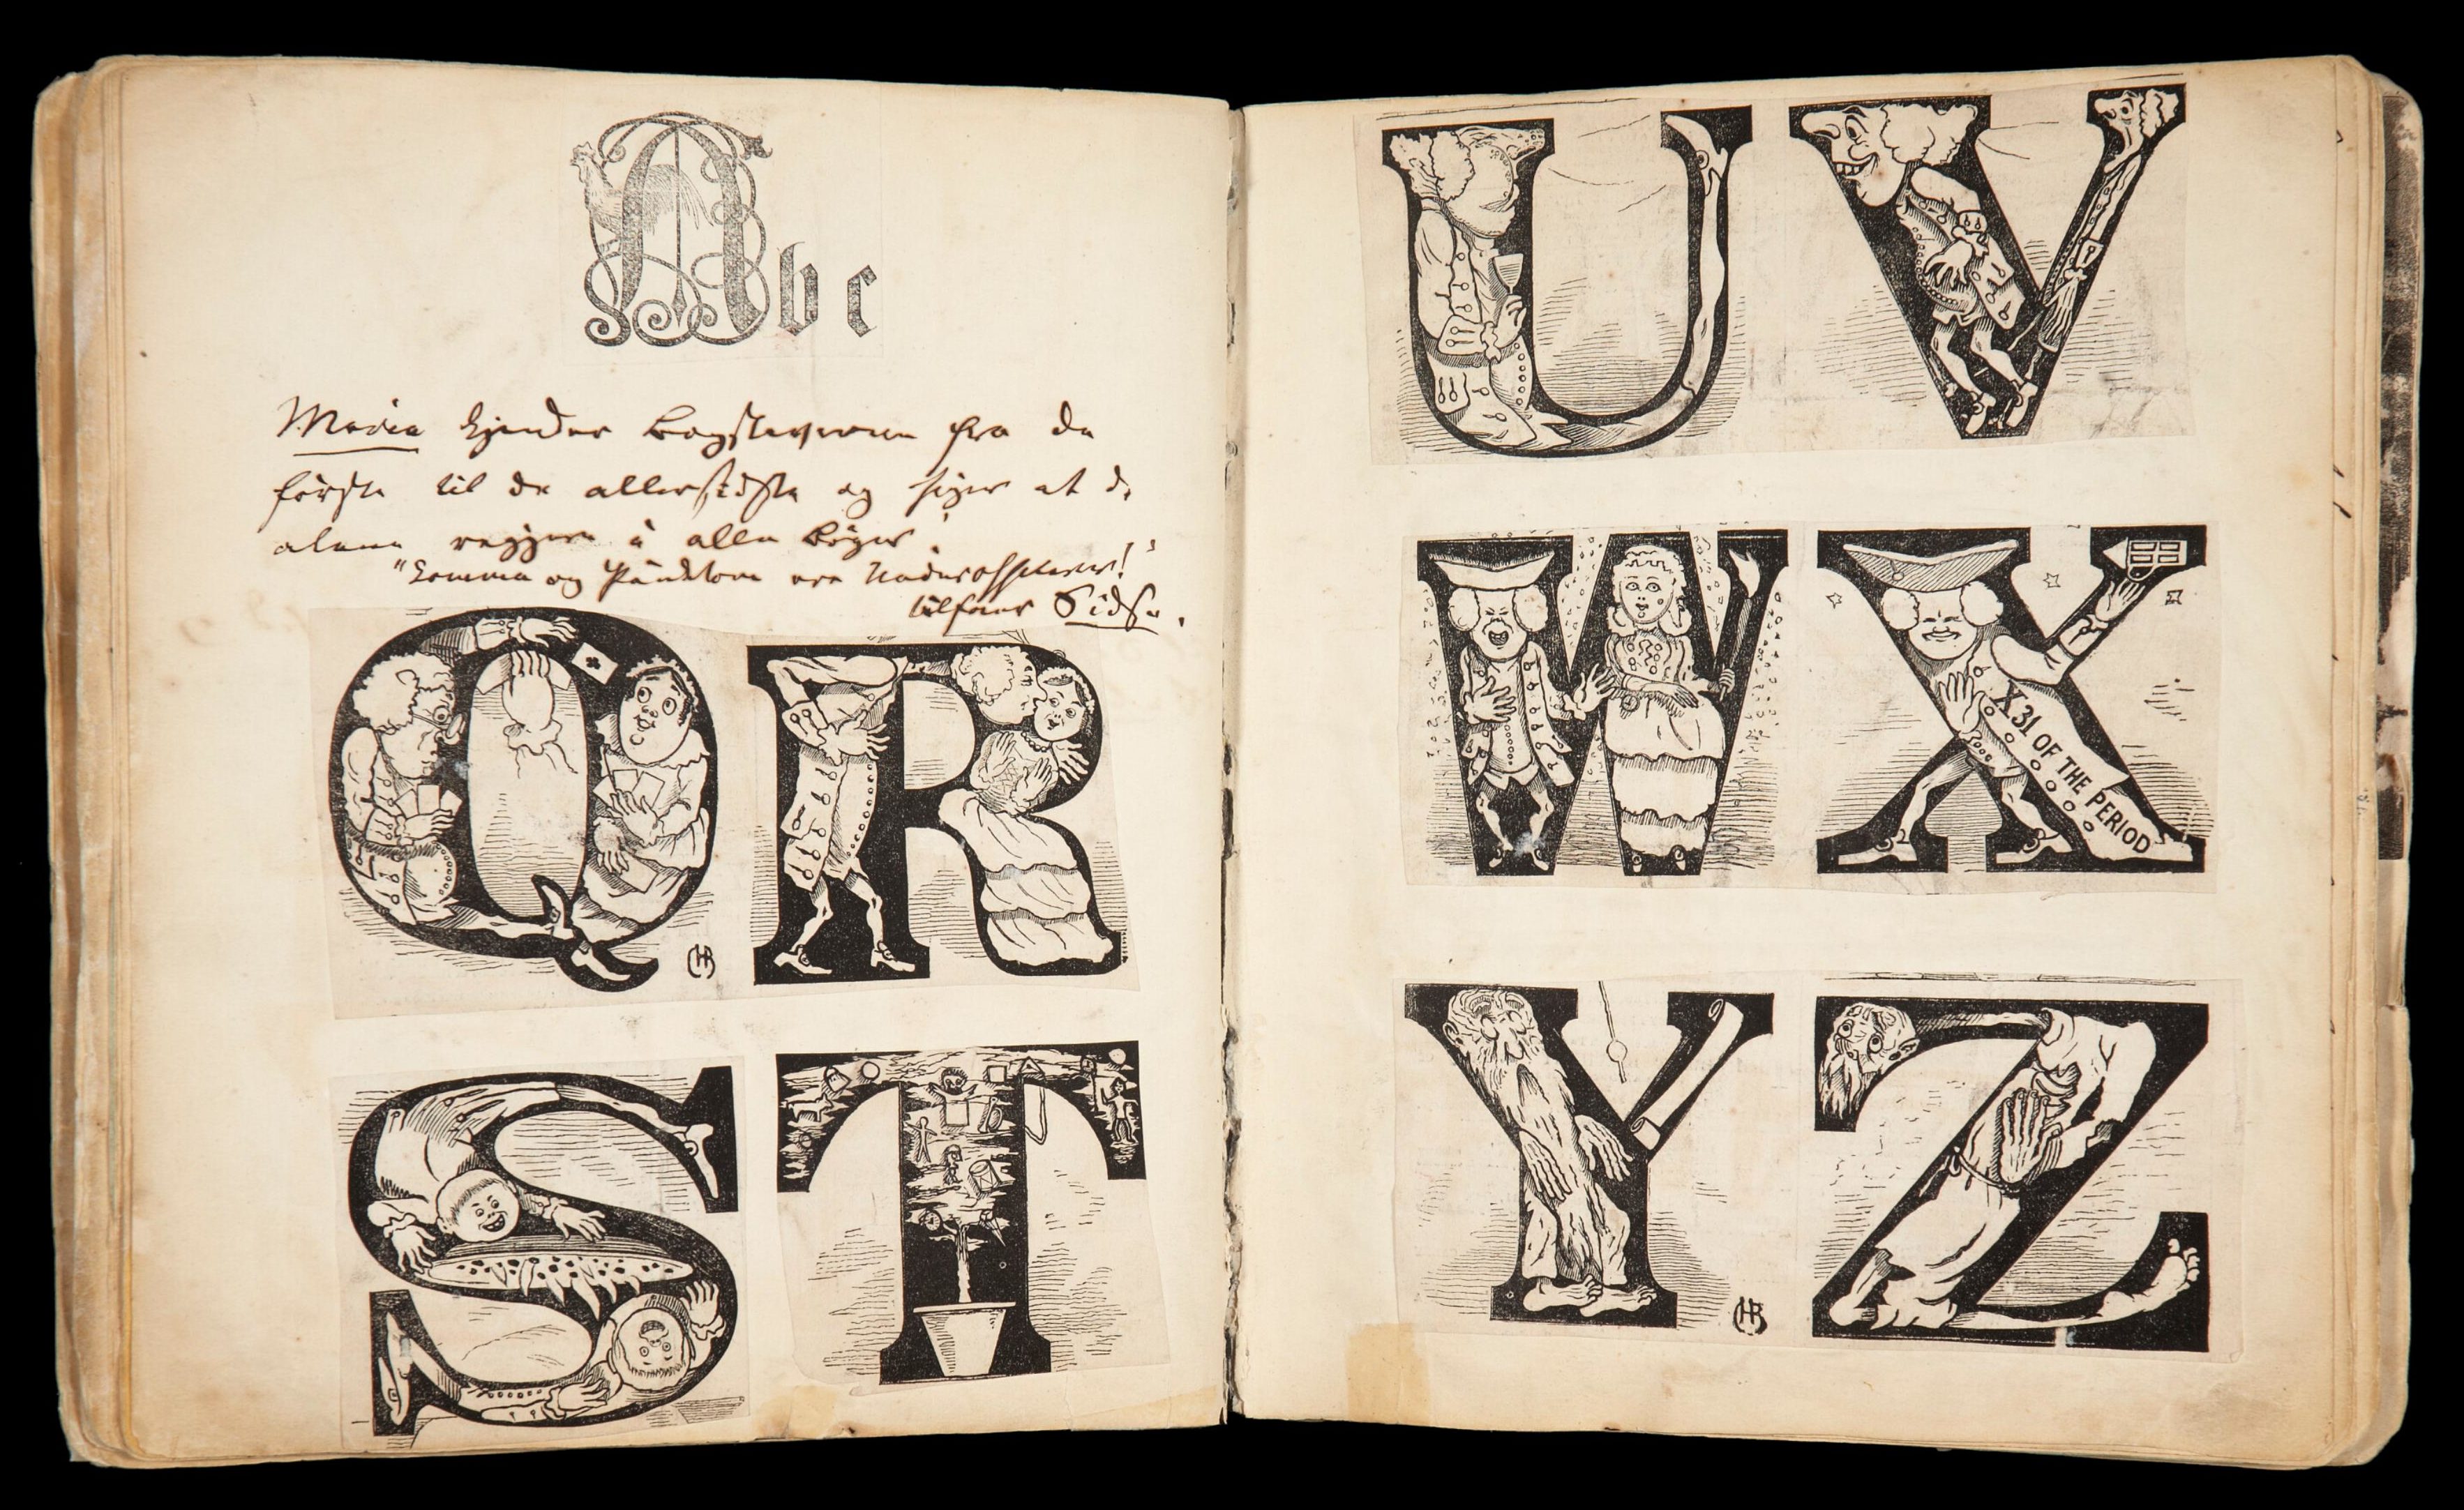 Abc
Maria kjender Bogstaverne fra de
første til de allersidste og siger at de
alene regjere i alle Bøger.
"Komma og Punktere ere Underofficerer!"
tilføier Sidse.
Q R
HB
S T
U V
W X
X 31 OF THE PERIOD
Y Z
HB